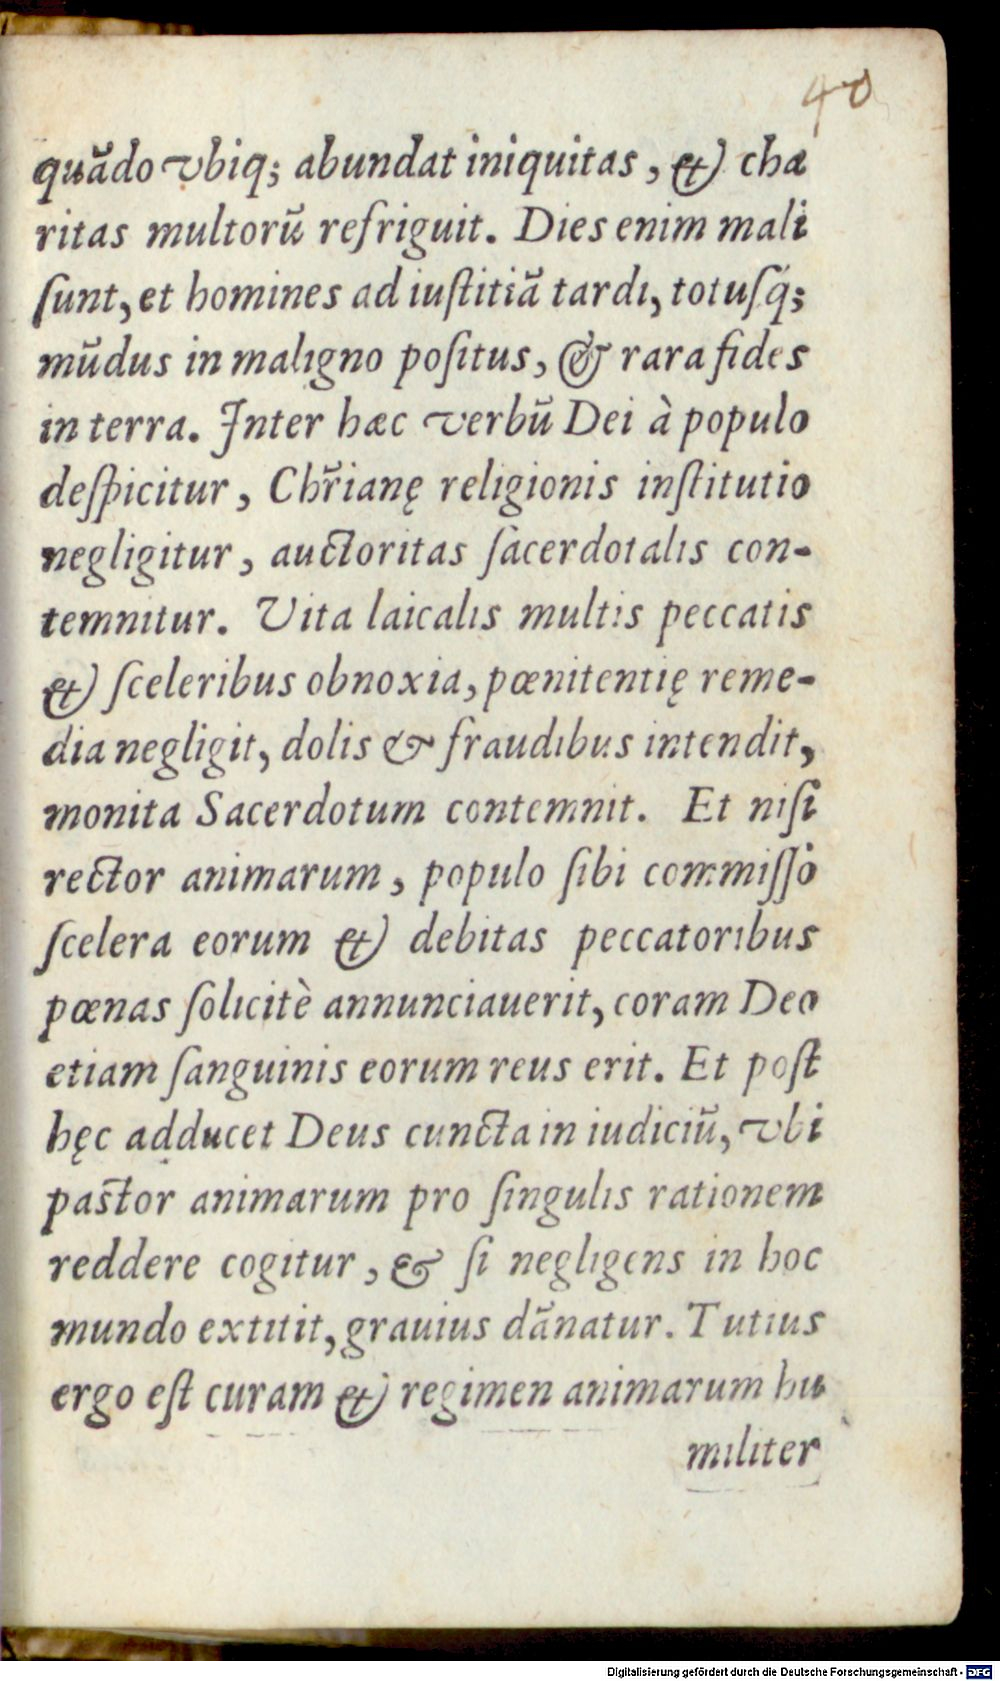 40
quãdo vbiq; abundat iniquitas, & cha
ritas multorũ refriguit. Dies enim mali
ſunt, et homines ad iuſtitiã tardi, totuſq̃;
mũdus in maligno poſitus, & rara fides
in terra. Inter hæc verbũ Dei à populo
deſpicitur, Chr̃ianę religionis inſtitutio
negligitur, auctoritas ſacerdotalis con-
temnitur. Vita laicalis multis peccatis
& ſceleribus obnoxia, pœnitentię reme-
dia negligit, dolis & fraudibus intendit,
monita Sacerdotum contemnit. Et niſi
rector animarum, populo ſibi commiſſo
ſcelera eorum & debitas peccatoribus
pœnas ſolicitè annunciauerit, coram Deo
etiam ſanguinis eorum reus erit. Et poſt
hęc adducet Deus cuncta in iudiciũ, vbi
paſtor animarum pro ſingulis rationem
reddere cogitur, & ſi negligens in hoc
mundo extitit, grauius dãnatur. Tutius
ergo eſt curam & regimen animarum hu
militer
Digitalisierung gefördert durch die Deutsche Forschungsgemeinschaft - DFG